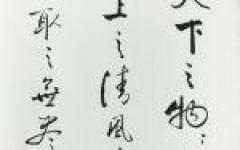 天下之物
上之清風
取之無盡